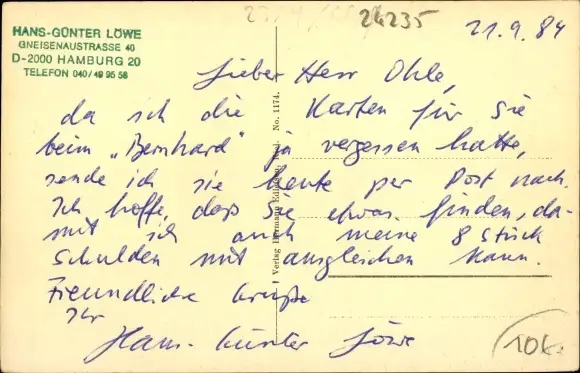 HANS-GÜNTER LÖWE
GNEISENAUSTRASSE 40
D-2000 HAMBURG 20
TELEFON 040/49 95 58
24235
21.9.84
Lieber Herr Ohle,
da ich die Karten für Sie
beim „Bernhard" ja vergessen hatte,
sende ich sie heute per Post nach.
Ich hoffe, dass Sie etwas finden, da-
mit ich auch meine 8 Stück
Schulden mit ausgleichen kann.
Freundliche Grüße
Ihr
Hans-Günter Löwe
Verlag Hermann
No. 1174.
10K